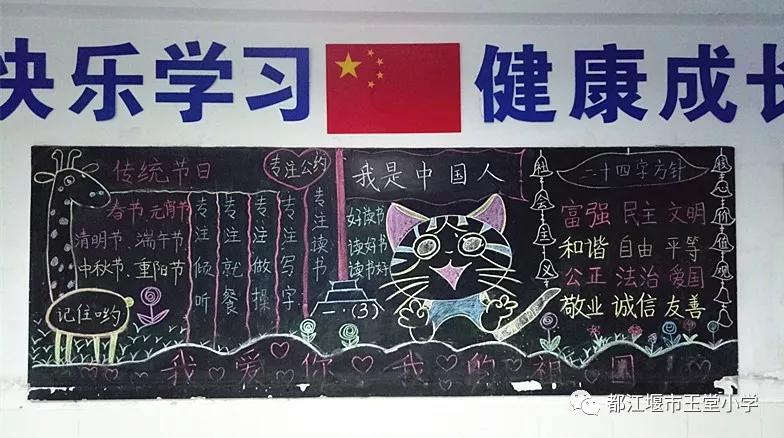 快乐学习 健康成长
传统节日
春节、元宵节
清明节、端午节
中秋节、重阳节
记住哟
专注公约
专注倾听
专注就餐
专注做操
专注写字
专注读书
我是中国人
好读书
读好书
读书好
一·(3)
社会主义
二十四字方针
核心价值观
富强 民主 文明
和谐 自由 平等
公正 法治 爱国
敬业 诚信 友善
我爱你我的祖国
都江堰市玉堂小学